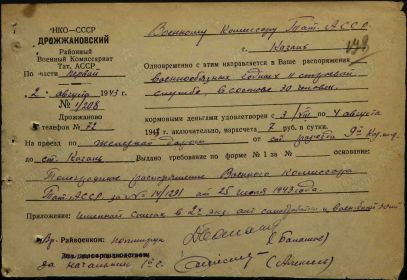 НКО—СССР
ДРОЖЖАНОВСКИЙ
Районный
Военный Комиссариат
Тат. АССР
По части первой
2 августа 1943 г.
№ 1/208
Дрожжаново
телефон № 72
Военному Комиссару Тат. АССР
г. Казань
Одновременно с этим направляется в Ваше распоряжение
военнообязанных годных к строевой
службе, в составе 30 человек.
кормовыми деньгами удовлетворен с 3/VIII по 4 августа
1943 г. включительно, из расчета 7 руб. в сутки.
На проезд по железной дороге от разъезда
до ст. Казань Выдано требование по форме № 1 за № основание:
распоряжение Военного Комиссара
Тат. АССР за № 14/1291 от 25 июля 1943 года.
Приложение: именной список в 2х экз.
Вр. Райвоенком: (Балашов)
за начальник 1 ч. (Алексеев)